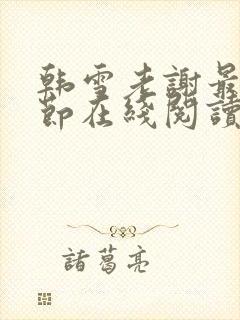 韩雪老謝最
節在綫閱讀
諸葛亮